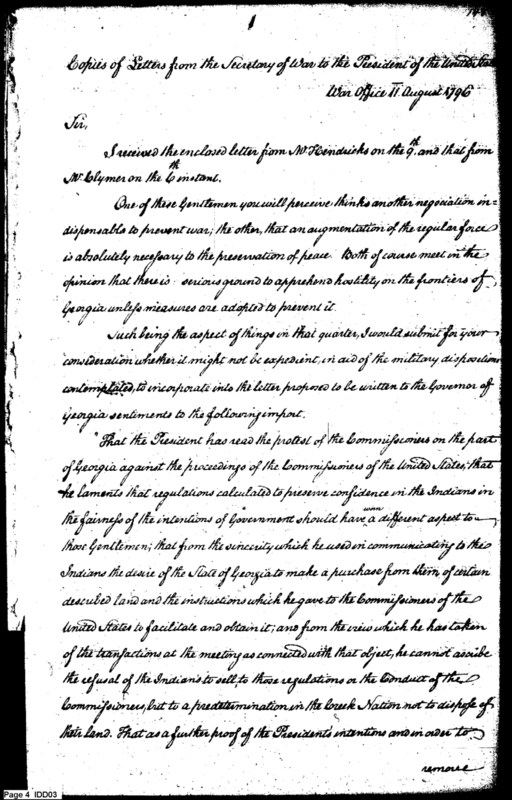 1
Copies of Letters from the Secretary of War to the President of the United
War Office 11 August 1796
Sir,
I received the enclosed letter from Mr Hendricks on the 9th. and that from
Mr. Clymer on the 6th instant.
One of these Gentlemen you will perceive thinks another negociation in=
dispensable to prevent war; the other, that an augmentation of the regular force
is absolutely necessary to the preservation of peace. Both of course meet in the
opinion that there is serious ground to apprehend hostility on the frontiers of
Georgia unless measures are adopted to prevent it.
Such being the aspect of things in that quarter, I would submit for your
consideration whether it might not be expedient, in aid of the military dispositions
contemplated, to incorporate into the letter proposed to be written to the Governor of
Georgia sentiments to the following import.
"That the President has read the protest of the Commissioners on the part
of Georgia against the proceedings of the Commissioners of the United States; that
he laments that regulations calculated to preserve confidence in the Indians in
the fairness of the intentions of Government should have worn a different aspect to
those Gentlemen; that from the sincerity which he used in communicating to the
Indians the desire of the State of Georgia to make a purchase from them of certain
described land and the instructions which he gave to the Commissioners of the
United States to facilitate and obtain it; and from the view which he has taken
of the transactions at the meeting as connected with that object, he cannot ascribe
the refusal of the Indians to sell, to those regulations or the Conduct of the
Commissioners, but to a predetermination in the Creek Nation not to dispose of
their land. That as a further proof of the Presidents intentions and in order to
remove
Page 4 IDD03